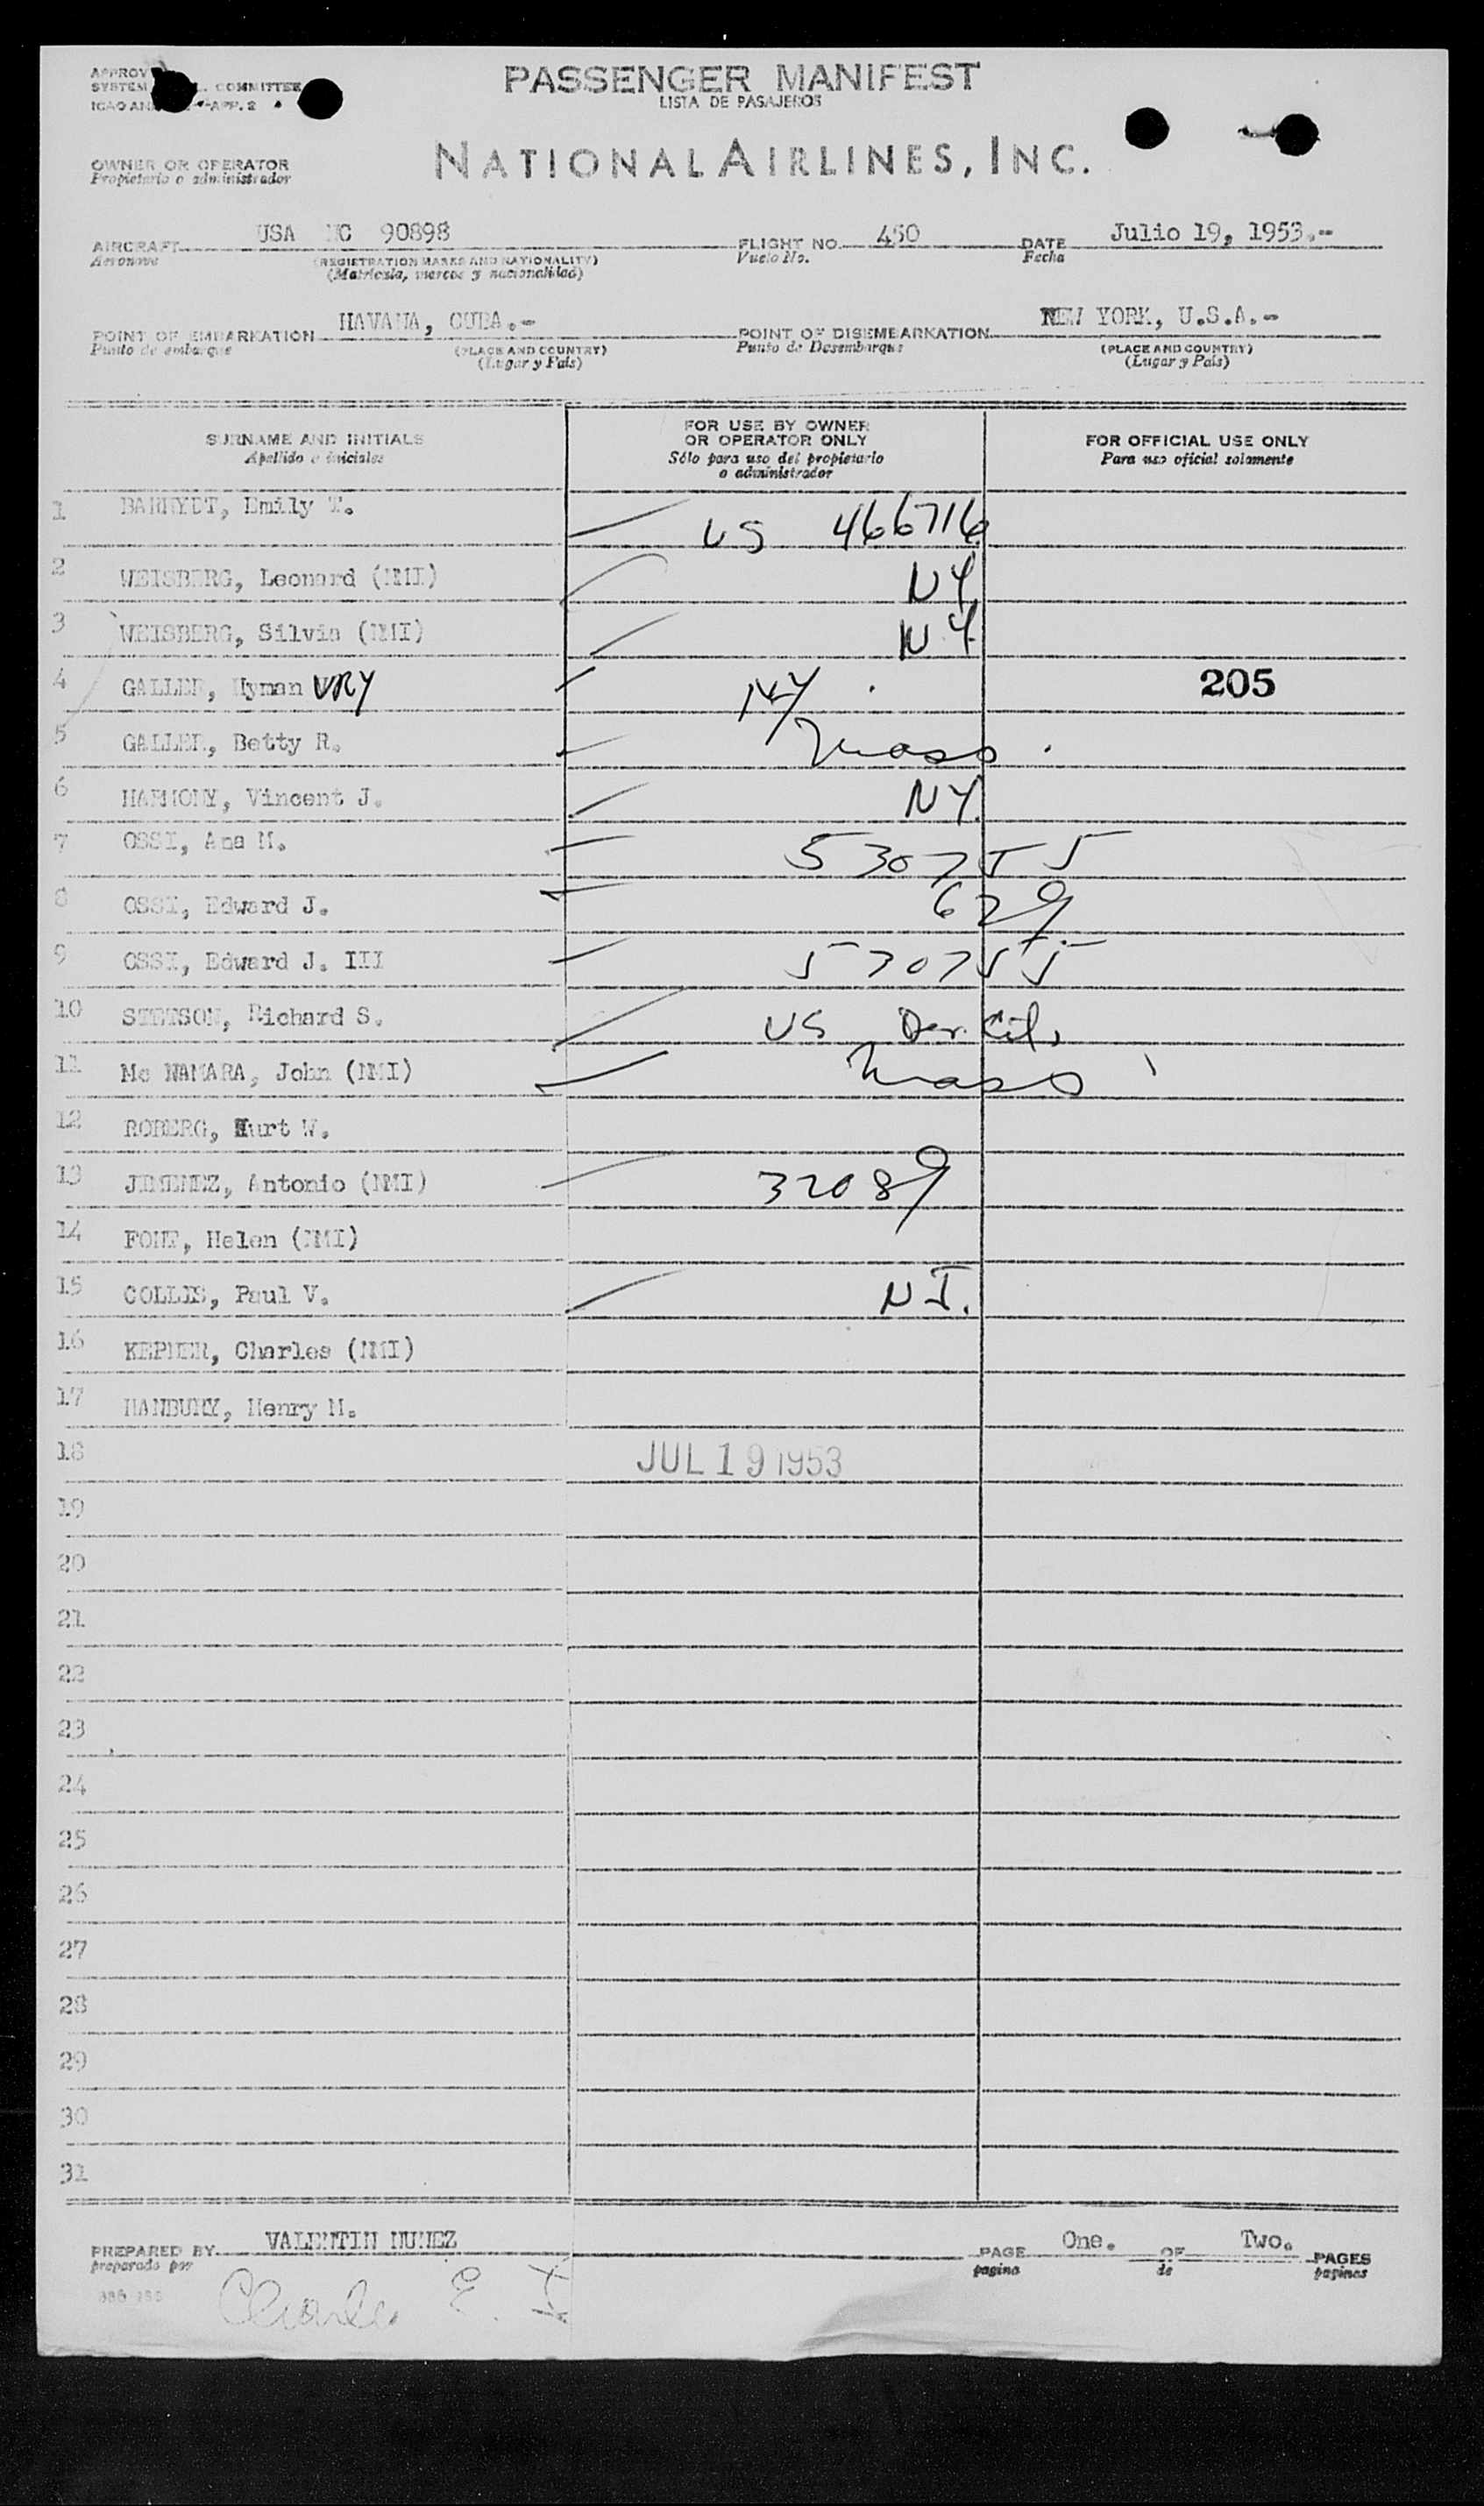 PASSENGER MANIFEST
LISTA DE PASAJEROS
SYSTEM COMMITTEE
APP. 2
NATIONAL AIRLINES, INC.
OWNER OR OPERATOR
Propietario o administrador
AIRCRAFT USA NC 90898 FLIGHT NO. 450 DATE Julio 19, 1953.-
Aeronave (REGISTRATION MARKS AND NATIONALITY) Vuelo No. Fecha
(Matricula, marcas y nacionalidad)
POINT OF EMBARKATION HAVANA, CUBA.- POINT OF DISEMBARKATION NEW YORK, U.S.A.-
Punto de embarque (PLACE AND COUNTRY) Punto de Desembarque (PLACE AND COUNTRY)
(Lugar y País) (Lugar y País)
SURNAME AND INITIALS
Apellido e iniciales
FOR USE BY OWNER
OR OPERATOR ONLY
Sólo para uso del propietario
o administrador
FOR OFFICIAL USE ONLY
Para uso oficial solamente
1 Emily T. US 466716
2 WEISBERG, Leonard (NMI) NY
3 WEISBERG, Silvia (NMI) N.Y.
4 GALLER, Hyman 205
5 GALLER, Betty R. Mass.
6 HARMONY, Vincent J. NY.
7 OSSI, Ana M. 530755
8 OSSI, Edward J. 629
9 OSSI, Edward J. III 530755
10 STETSON, Richard S. US Cit.
11 Mc NAMARA, John (NMI) Mass
12 ROBERG, Kurt W.
13 JIMENEZ, Antonio (NMI) 32089
14 Helen (NMI)
15 COLLIS, Paul V. N.J.
16 KEPNER, Charles (NMI)
17 HANBURY, Henry M.
18 JUL 19 1953
19
20
21
22
23
24
25
26
27
28
29
30
31
PREPARED BY VALENTIN NUNEZ PAGE One. OF Two. PAGES
preparado por pagina de paginas
Charles E.